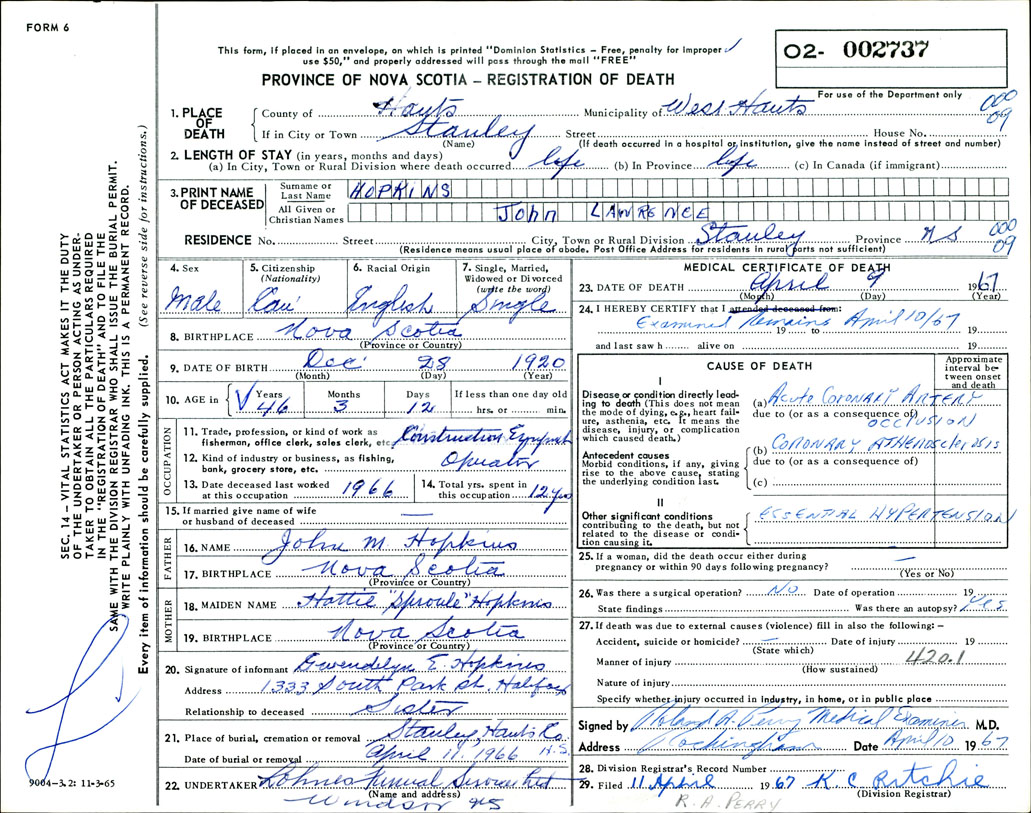 FORM 6
This form, if placed in an envelope, on which is printed "Dominion Statistics – Free, penalty for improper
use $50," and properly addressed will pass through the mail "FREE"
O2- 002737
PROVINCE OF NOVA SCOTIA – REGISTRATION OF DEATH
For use of the Department only
1. PLACE OF DEATH
County of Hants Municipality of West Hants 000 09
If in City or Town Stanley Street House No.
(Name) (If death occurred in a hospital or institution, give the name instead of street and number)
2. LENGTH OF STAY (in years, months and days)
(a) In City, Town or Rural Division where death occurred life (b) In Province life (c) In Canada (if immigrant)
3. PRINT NAME OF DECEASED
Surname or Last Name HOPKINS
All Given or Christian Names John LAWRENCE
RESIDENCE No. Street City, Town or Rural Division Stanley Province NS 000 09
(Residence means usual place of abode. Post Office Address for residents in rural parts not sufficient)
4. Sex Male
5. Citizenship (Nationality) Can
6. Racial Origin English
7. Single, Married, Widowed or Divorced (write the word) Single
8. BIRTHPLACE Nova Scotia
(Province or Country)
9. DATE OF BIRTH Dec 28 1920
(Month) (Day) (Year)
10. AGE in Years 46 Months 3 Days 12 If less than one day old hrs. or min.
OCCUPATION
11. Trade, profession, or kind of work as fisherman, office clerk, sales clerk, etc. Construction
12. Kind of industry or business, as fishing, bank, grocery store, etc. Operator
13. Date deceased last worked at this occupation 1966
14. Total yrs. spent in this occupation 12 yrs
15. If married give name of wife or husband of deceased —
FATHER
16. NAME John M. Hopkins
17. BIRTHPLACE Nova Scotia
(Province or Country)
MOTHER
18. MAIDEN NAME Hattie "Sproule" Hopkins
19. BIRTHPLACE Nova Scotia
(Province or Country)
20. Signature of informant Gwendolyn E. Hopkins
Address 1333 South Park St. Halifax
Relationship to deceased Sister
21. Place of burial, cremation or removal Stanley, Hants Co. N.S.
Date of burial or removal April 11, 1966
22. UNDERTAKER Lohnes Funeral Service Ltd
(Name and address)
Windsor NS
MEDICAL CERTIFICATE OF DEATH
23. DATE OF DEATH April 9 1967
(Month) (Day) (Year)
24. I HEREBY CERTIFY that I attended deceased from:
Examined Remains April 10/67 19 to 19
and last saw h alive on 19
CAUSE OF DEATH
Approximate interval between onset and death
I
Disease or condition directly leading to death (This does not mean the mode of dying, e.g., heart failure, asthenia, etc. It means the disease, injury, or complication which caused death.)
(a) Acute CORONARY ARTERY
due to (or as a consequence of) OCCLUSION
Antecedent causes
Morbid conditions, if any, giving rise to the above cause, stating the underlying condition last.
(b) CORONARY ATHEROSCLEROSIS
due to (or as a consequence of)
(c)
II
Other significant conditions contributing to the death, but not related to the disease or condition causing it.
ESSENTIAL HYPERTENSION
25. If a woman, did the death occur either during pregnancy or within 90 days following pregnancy? —
(Yes or No)
26. Was there a surgical operation? NO Date of operation 19
State findings Was there an autopsy? Yes
27. If death was due to external causes (violence) fill in also the following: –
Accident, suicide or homicide? — Date of injury 19
(State which)
Manner of injury 420.1
(How sustained)
Nature of injury
Specify whether injury occurred in industry, in home, or in public place
Signed by Roland A. Perry Medical Examiner M.D.
Address Rockingham Date April 10 1967
28. Division Registrar's Record Number
29. Filed 11 April 1967 K C Ritchie
(Division Registrar)
R. A. PERRY
SEC. 14 – VITAL STATISTICS ACT MAKES IT THE DUTY
OF THE UNDERTAKER OR PERSON ACTING AS UNDER-
TAKER TO OBTAIN ALL THE PARTICULARS REQUIRED
IN THE "REGISTRATION OF DEATH" AND TO FILE THE
SAME WITH THE DIVISION REGISTRAR WHO SHALL ISSUE THE BURIAL PERMIT.
WRITE PLAINLY WITH UNFADING INK. THIS IS A PERMANENT RECORD.
Every item of information should be carefully supplied. (See reverse side for instructions.)
9004–3.2: 11-3-65